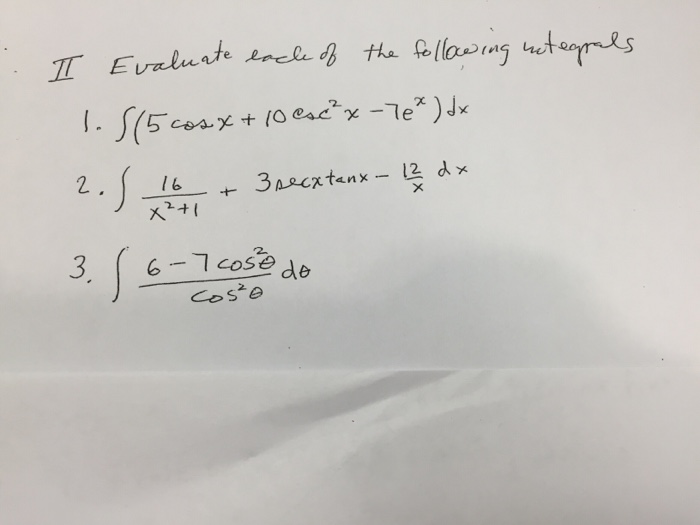 II Evaluate each of the following integrals
1. ∫(5 cosx + 10 csc²x - 7eˣ) dx
2. ∫ 16/(x²+1) + 3 secx tanx - 12/x dx
3. ∫ (6 - 7 cos²θ)/(cos²θ) dθ